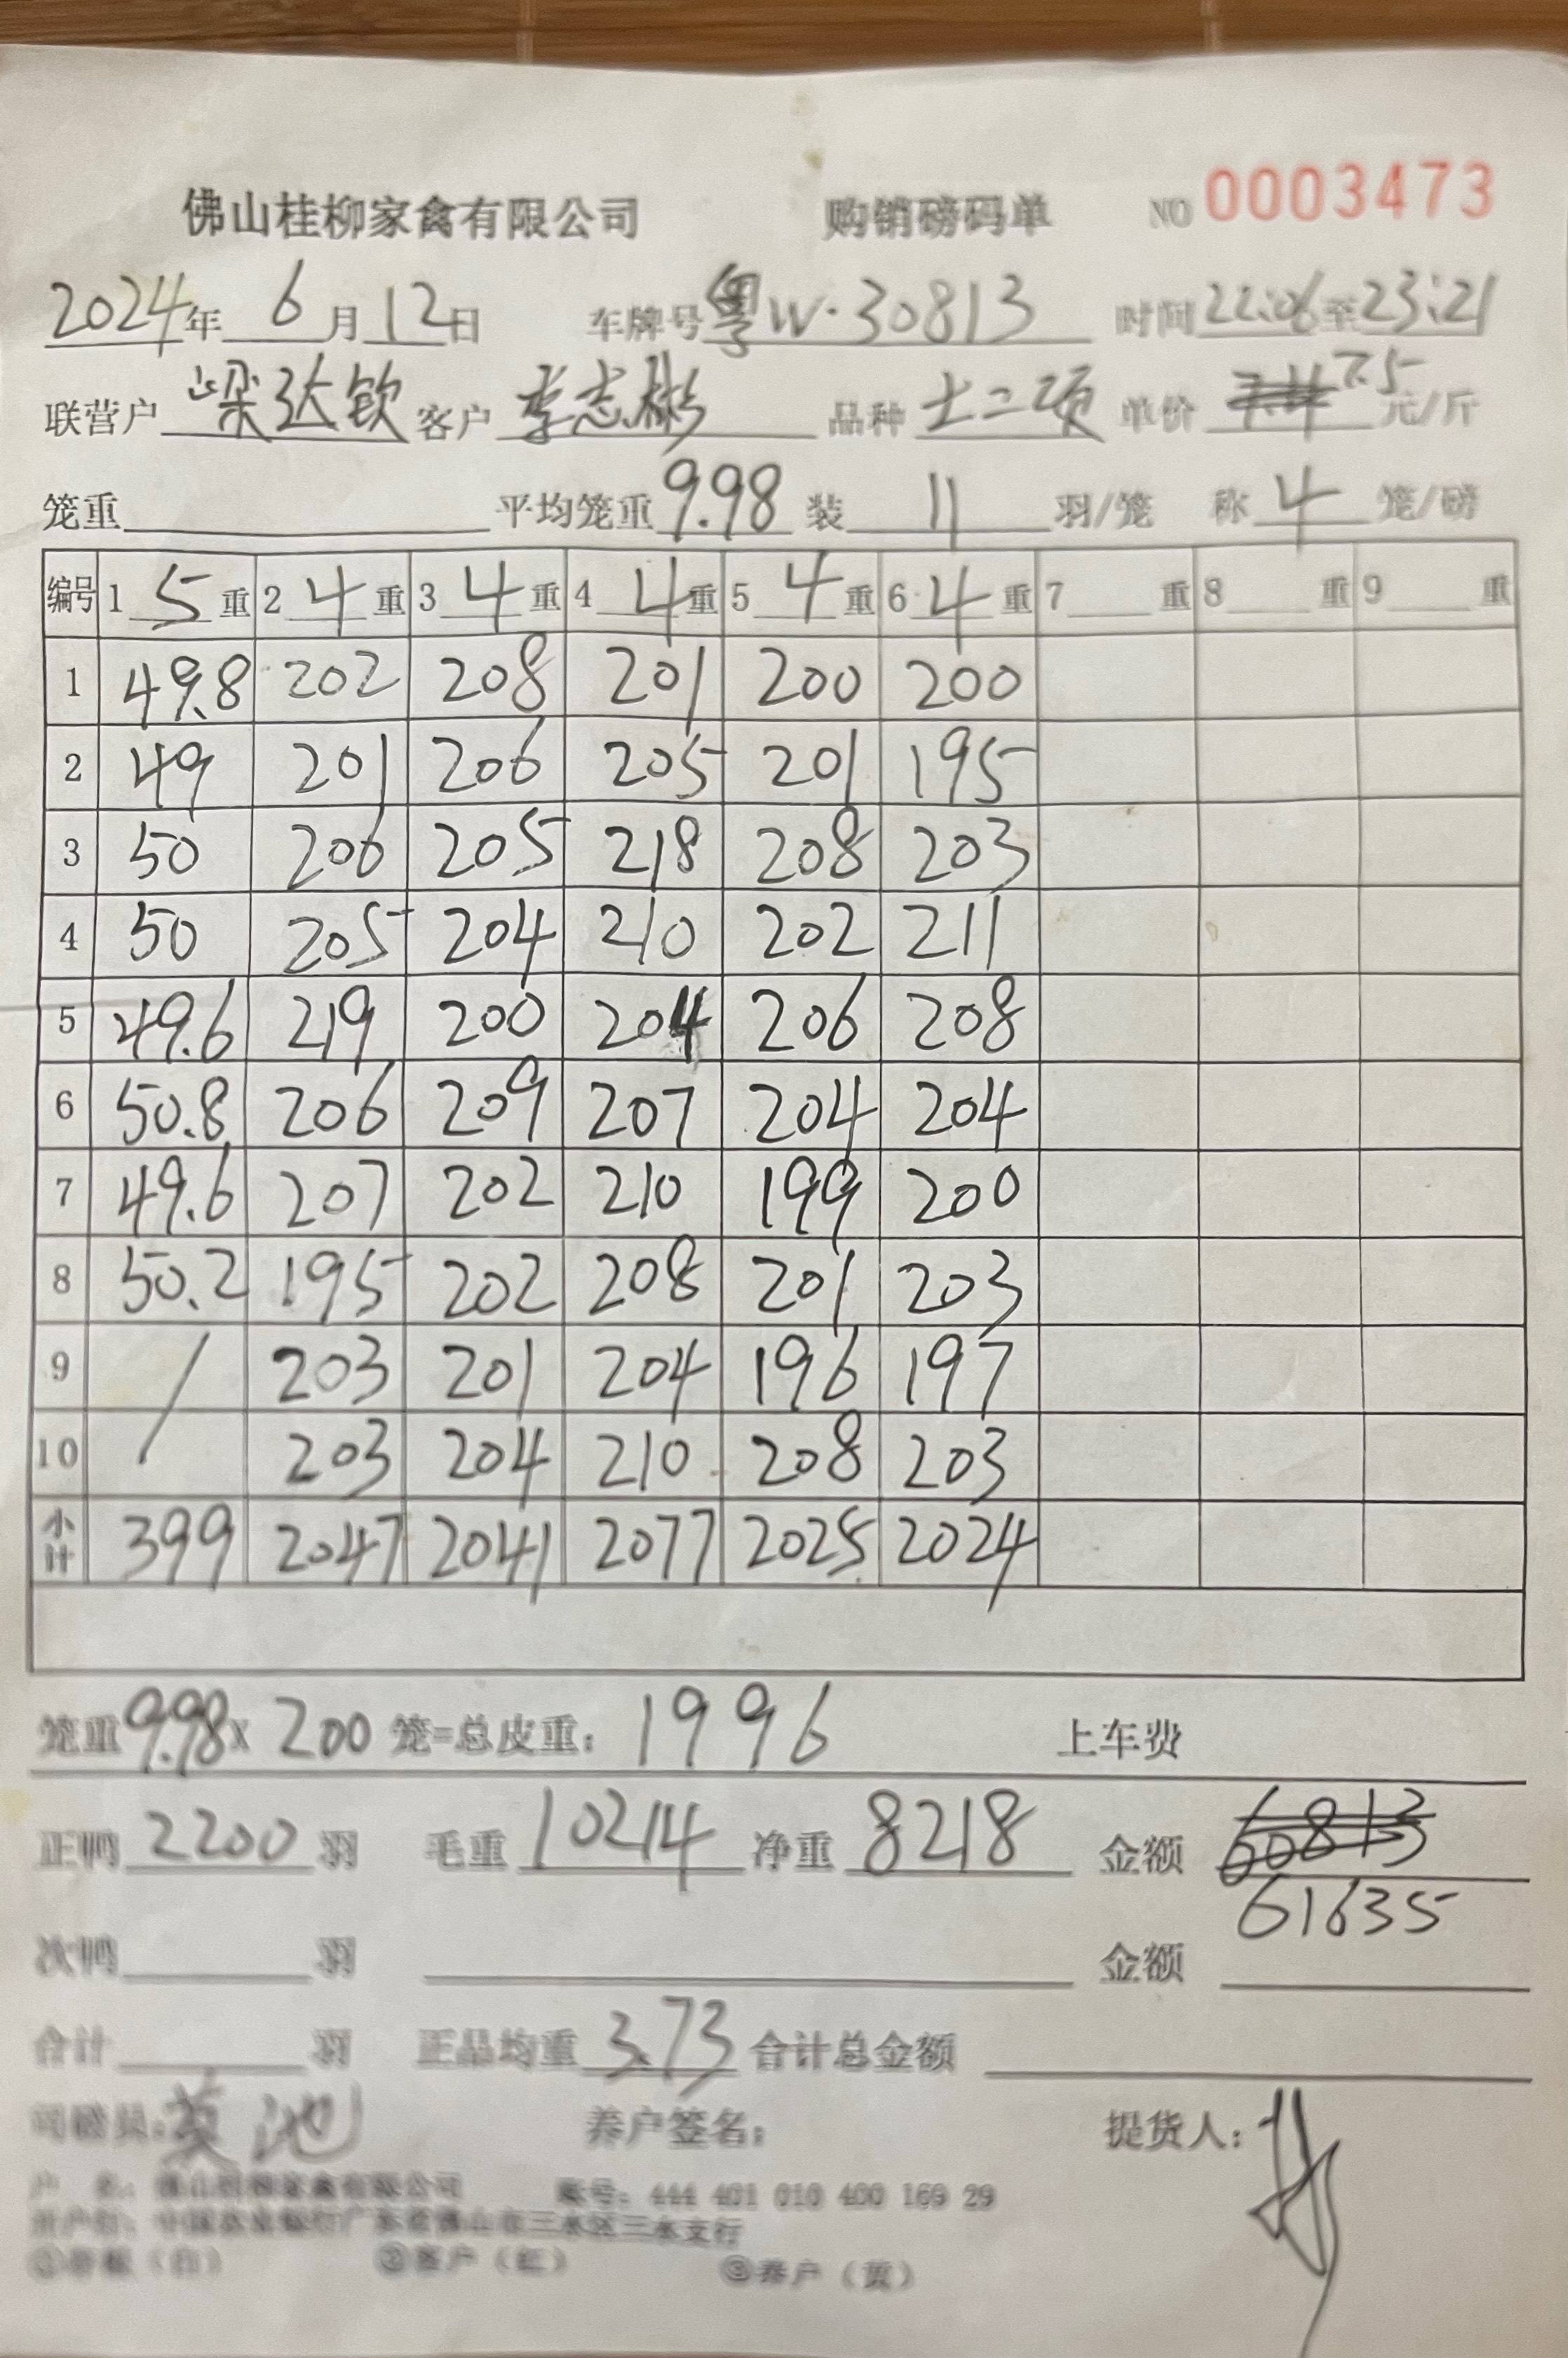 佛山桂柳家禽有限公司 购销磅码单 NO 0003473
2024年 6 月 12日 车牌号 粤W·30813 时间 22:06 至 23:21
联营户 梁达钦 客户 李志彬 品种 土二项 单价 7.5 元/斤
笼重 平均笼重 9.98 装 11 羽/笼 称 4 笼/磅
编号 1 5 重 2 4 重 3 4 重 4 4 重 5 4 重 6 4 重 7 重 8 重 9 重
1 49.8 202 208 201 200 200
2 49 201 206 205 201 195
3 50 206 205 218 208 203
4 50 205 204 210 202 211
5 49.6 219 200 204 206 208
6 50.8 206 209 207 204 204
7 49.6 207 202 210 199 200
8 50.2 195 202 208 201 203
9 / 203 201 204 196 197
10 203 204 210 208 203
小计 399 2047 2041 2077 2025 2024
笼重 9.98 X 200 笼=总皮重: 1996 上车费
正鸭 2200 羽 毛重 10214 净重 8218 金额 60813
61635
次鸭 羽 金额
合计 羽 正品均重 3.73 合计总金额
司磅员: 莫池 养户签名: 提货人:
户 名: 佛山桂柳家禽有限公司 账号: 444 401 010 400 169 29
开户行: 中国农业银行广东省佛山市三水区三水支行
②客户（红） ③养户（黄）